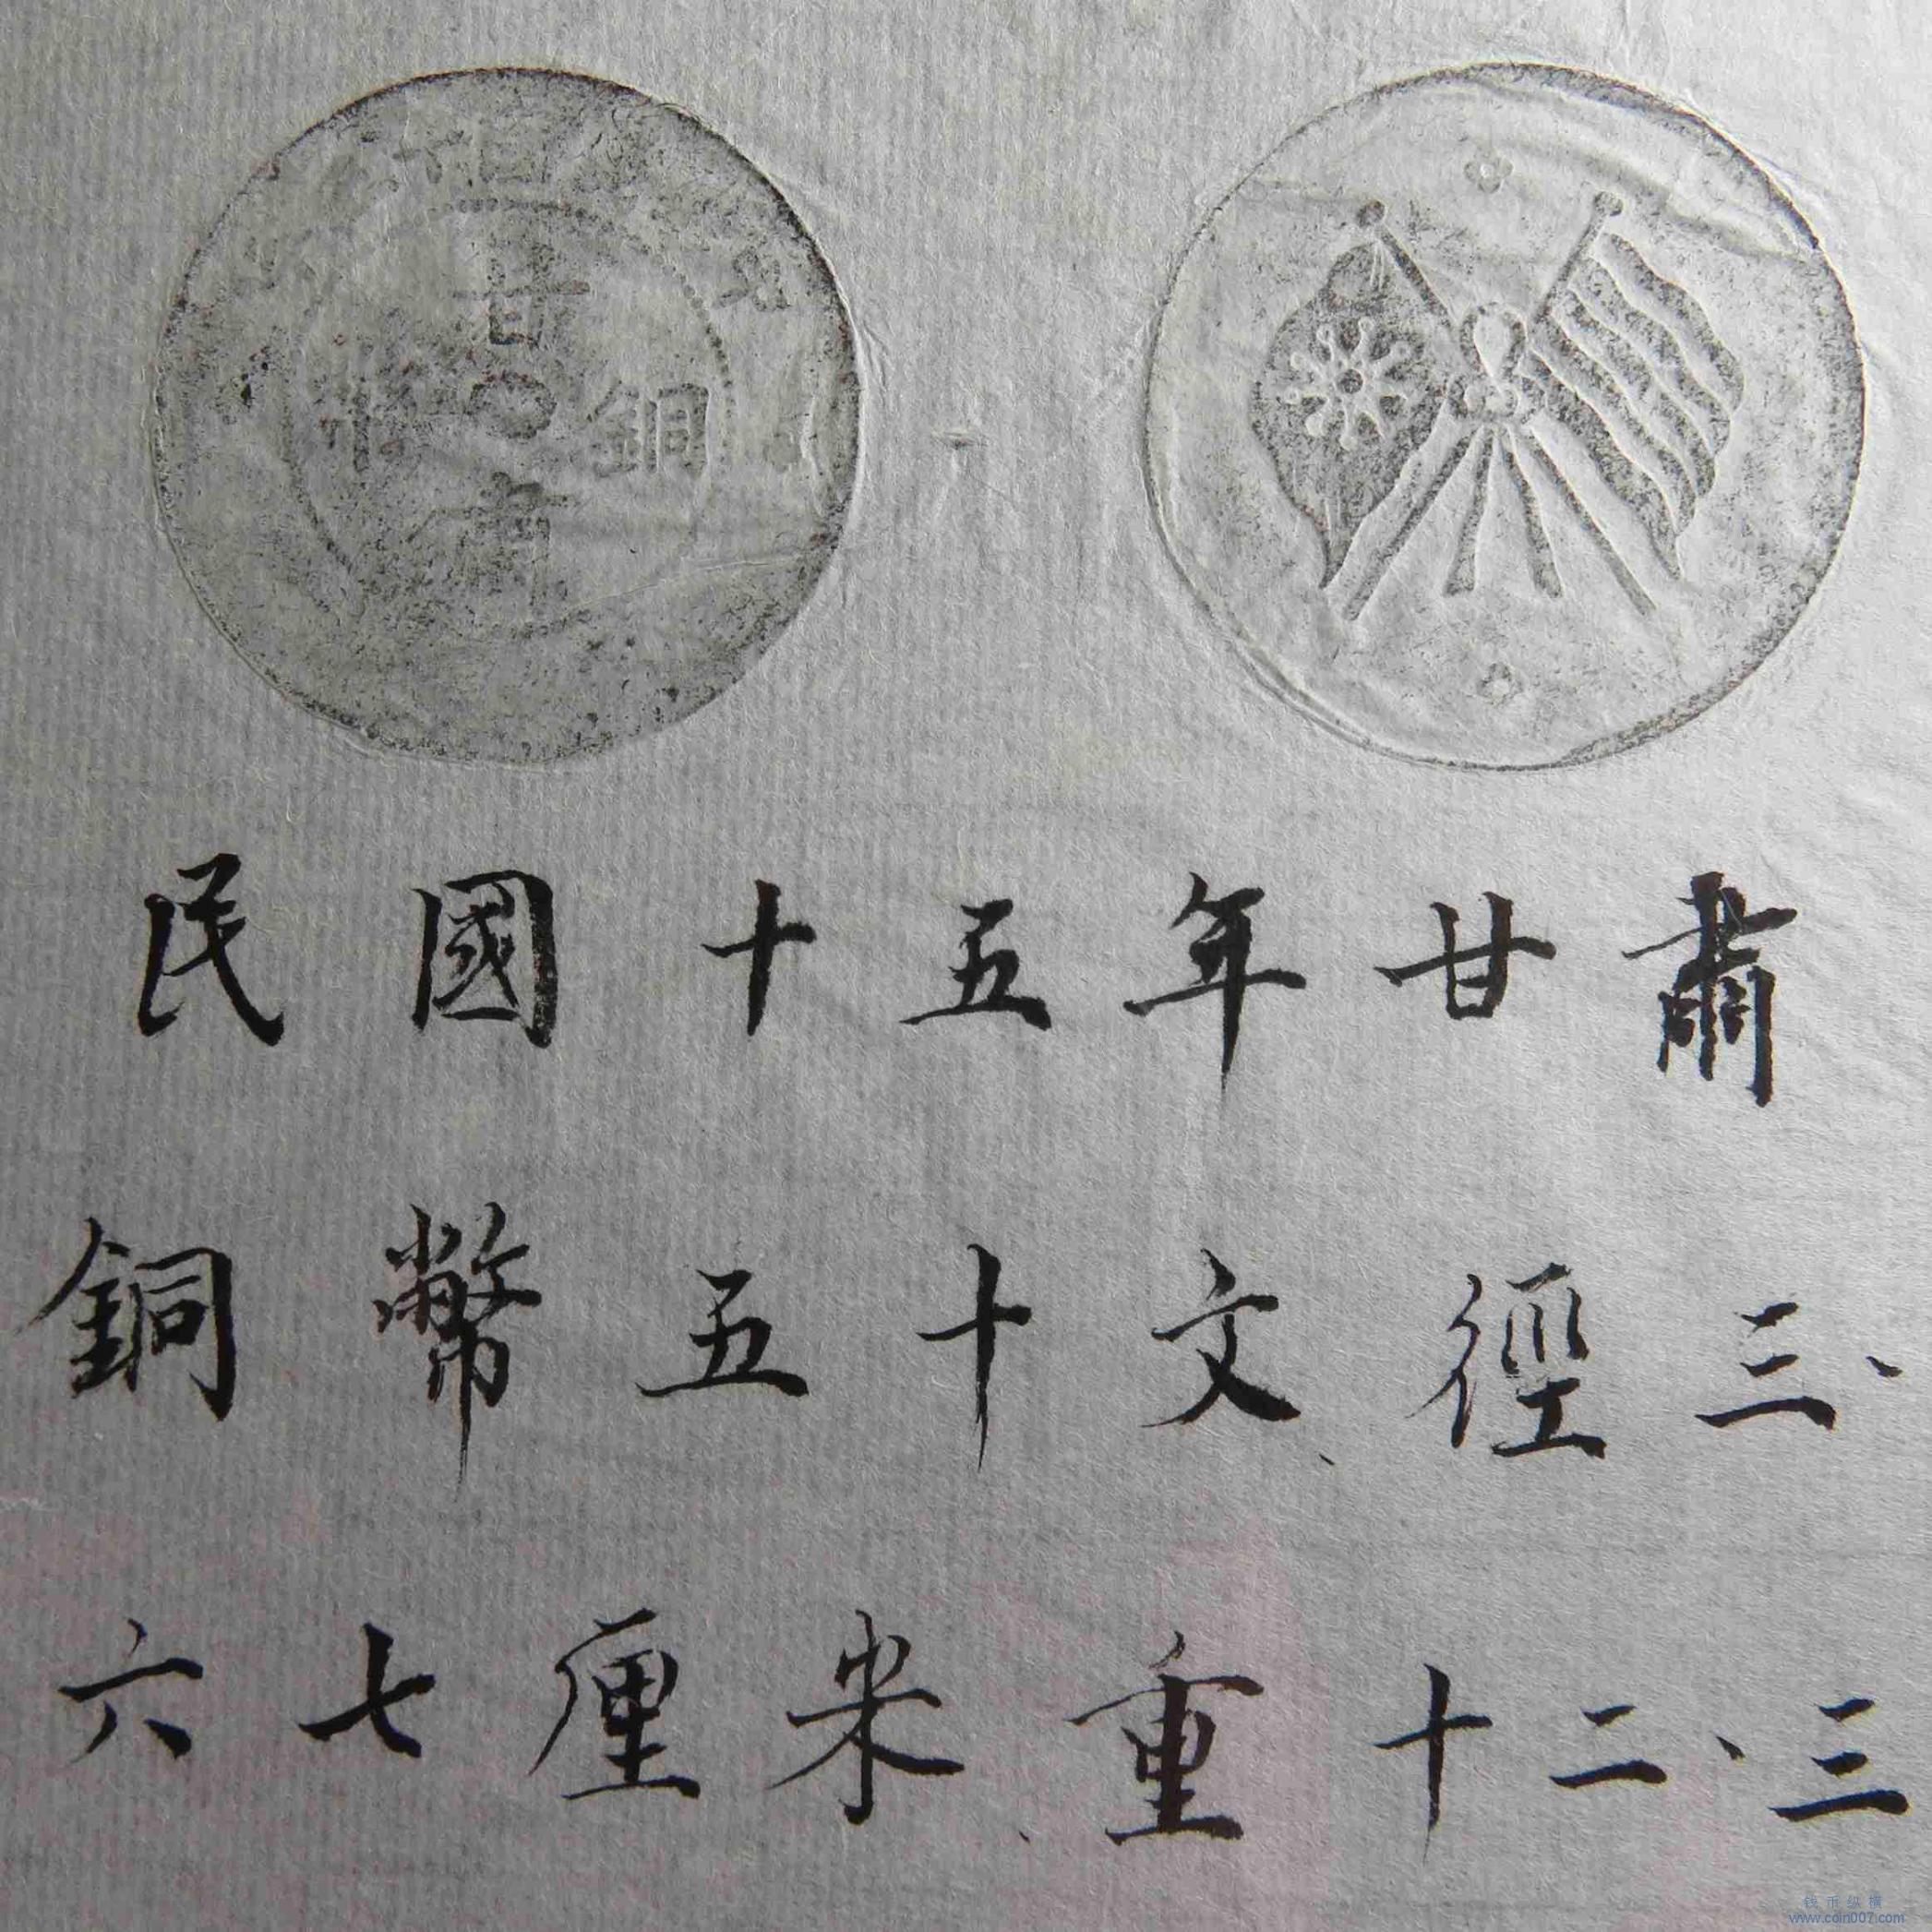 甘
銅
肅
民國十五年甘肅
銅幣五十文、徑三、
六七厘米、重十二、三
钱币纵横
www.coin007.com